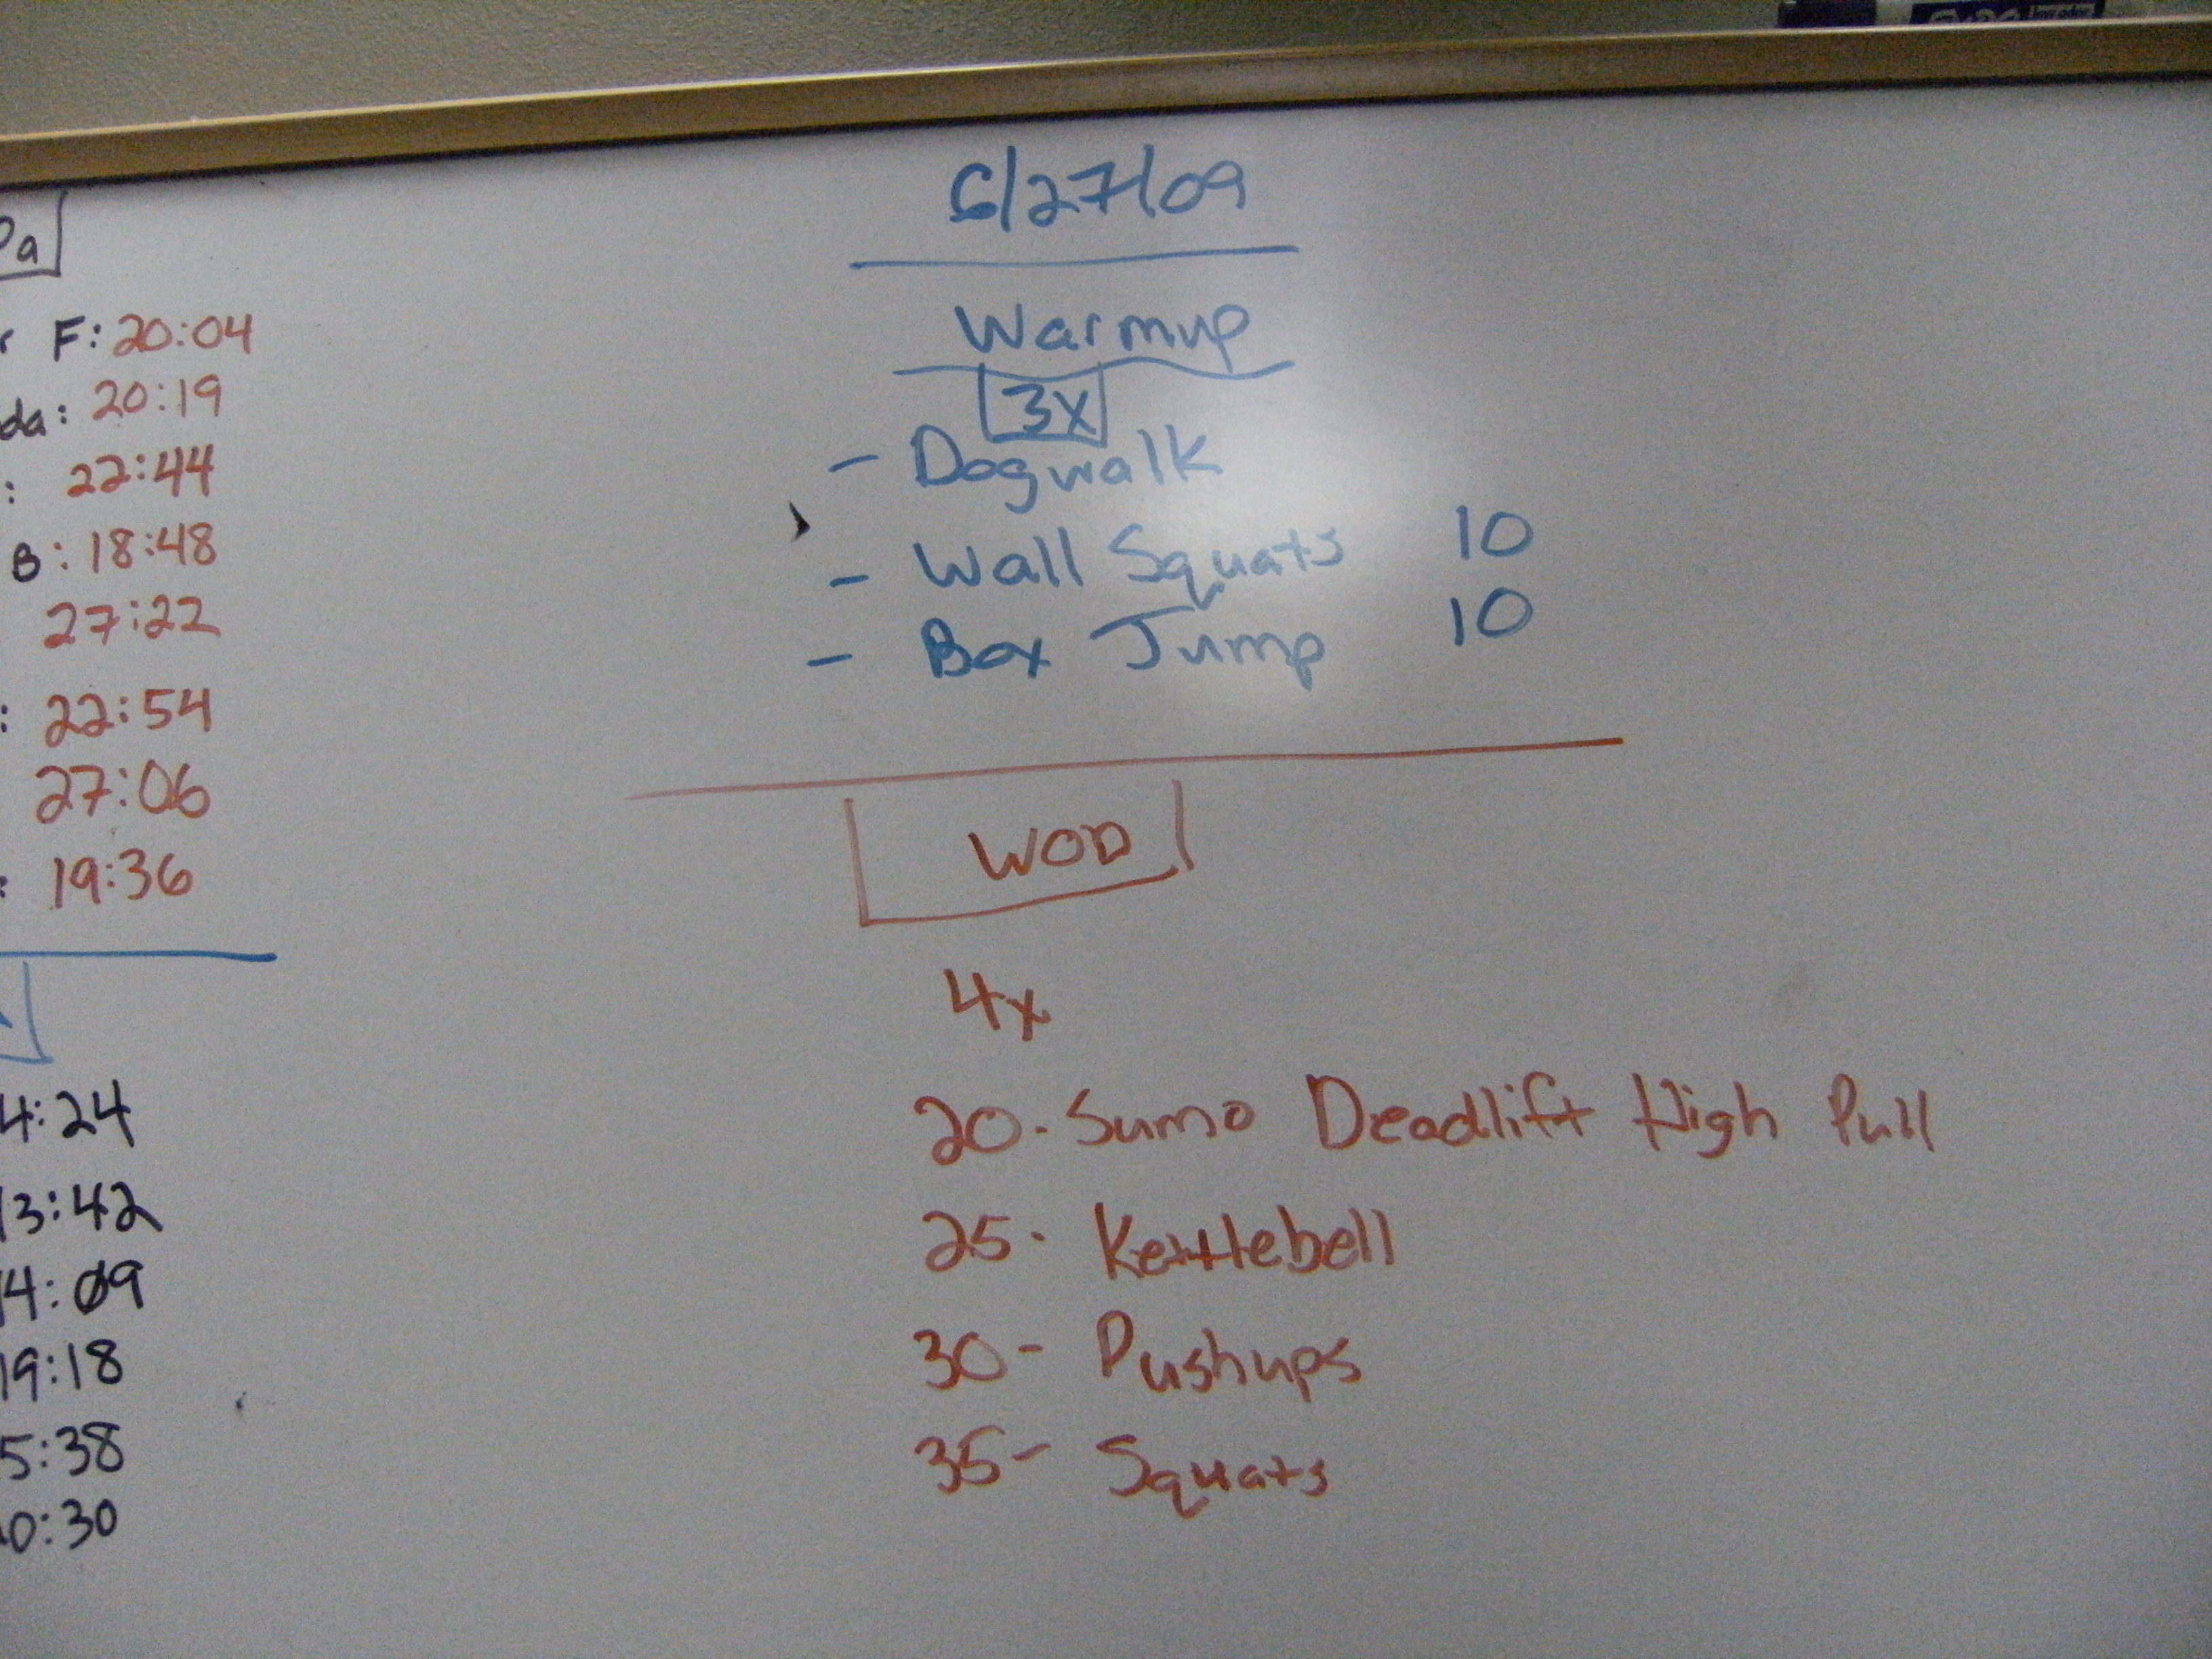 6/27/09
Warmup
3x
- Dogwalk
- Wall Squats 10
- Box Jump 10
WOD
4x
20- Sumo Deadlift High Pull
25- Kettlebell
30- Pushups
35- Squats
F: 20:04
da: 20:19
: 22:44
B: 18:48
27:22
: 22:54
27:06
: 19:36
4:24
13:42
14:09
19:18
5:38
0:30